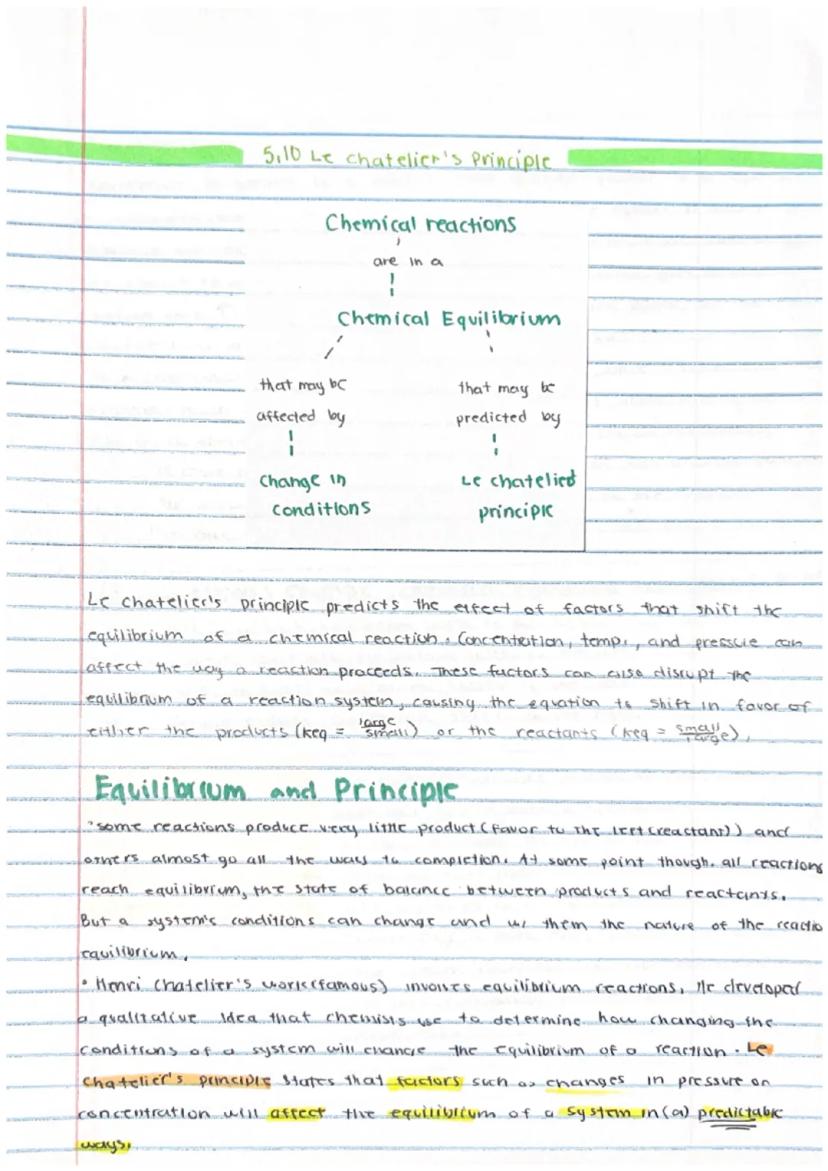 5.10 Le chatelier's Principle
Chemical reactions
are in a
Chemical Equilibrium
that may be
affected by
change in
conditions
that may be
predicted by
Le chatelied
principle
Le chatelier's principle predicts the effect of factors that shift the
equilibrium of a chemical reaction. Concentration, temp., and pressure can
affect the way a reaction proceeds. These factors can also disrupt the
equilibrium of a reaction system, causing the equation to shift in favor of
either the products (keq = large/small) or the reactants (keq = small/large).
Equilibrium and Principle
·some reactions produce very little product (favor to the left (reactant)) and
others almost go all the ways to completion. At some point though, all reactions
reach equilibrium, the state of balance between products and reactants.
But a system's conditions can change and w/ them the nature of the reactio
equilibrium.
• Henri Chatelier's work (famous) involves equilibrium reactions. He developed
a qualitative idea that chemists use to determine how changing the
conditions of a system will change the equilibrium of a reaction. Le
chatelier's principle states that factors such as changes in pressure on
concentration will affect the equilibrium of a system in (a) predictable
ways.